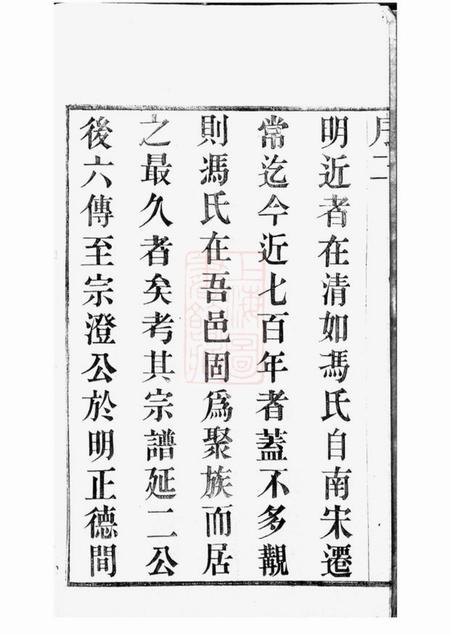 序二
明近者在清如馮氏自南宋遷
常迄今近七百年者蓋不多觀
則馮氏在吾邑固爲聚族而居
之最久者矣考其宗譜延二公
後六傳至宗澄公於明正德間